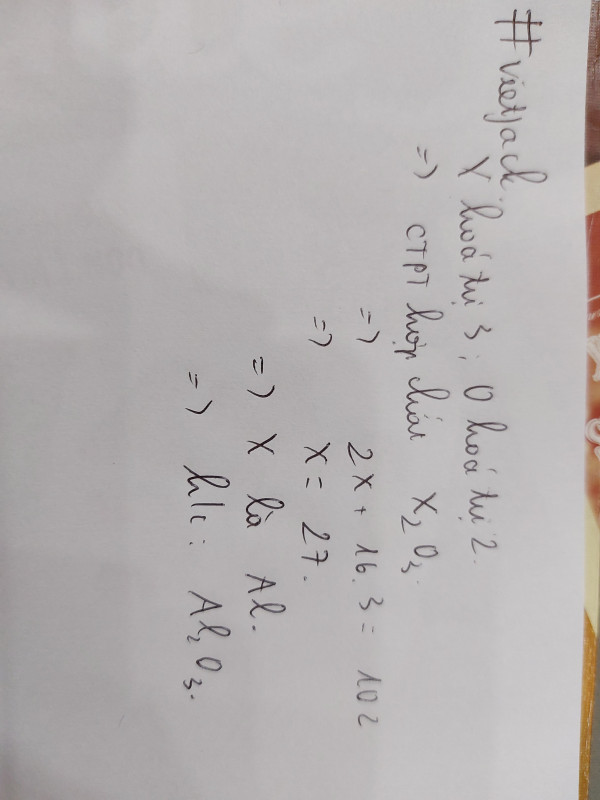 #vietjack.
X hoá trị 3; O hoá trị 2.
=) CTPT hợp chất X₂O₃.
=) 2X + 16.3 = 102
=) X = 27.
=) X là Al.
=) h/c: Al₂O₃.